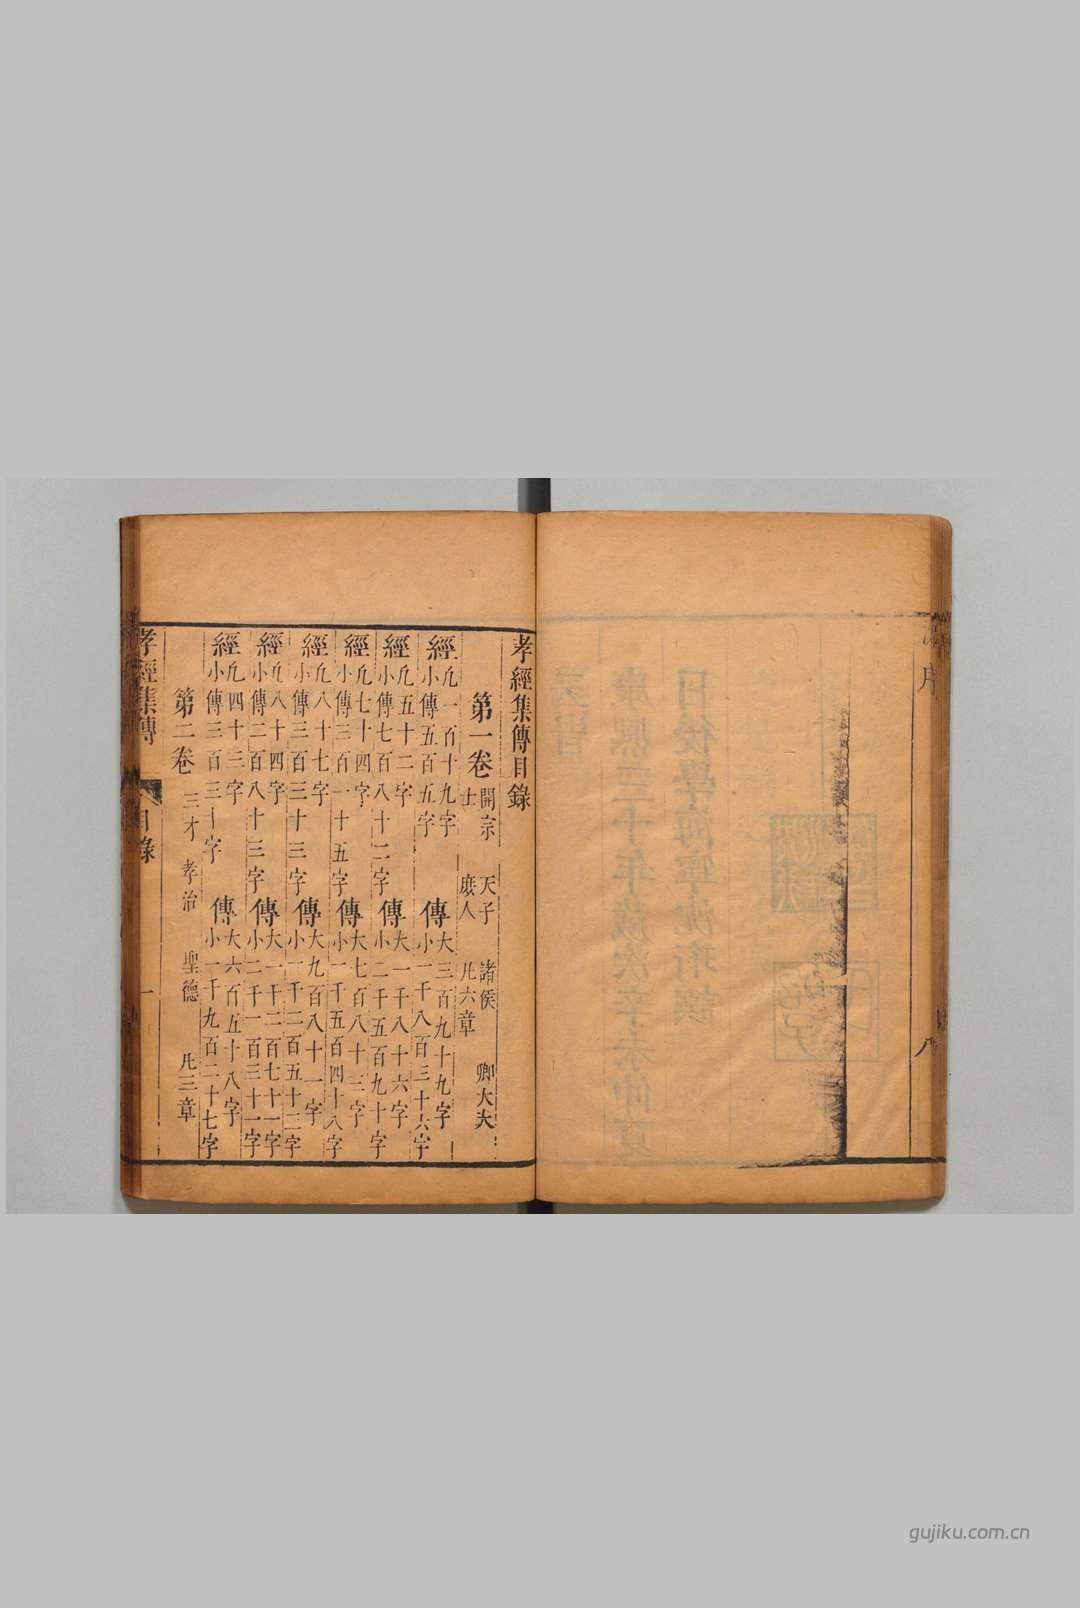 序
八
孝經集傳目錄
第一卷 開宗 天子 諸侯 卿大夫
士 庶人 凡六章
經凡一百十九字 小傳五百五字 傳大三百九十九字 小一千八百三十六字
經凡五十二字 小傳七百八十二字 傳大一千八十六字 小二千五百九十字
經凡七十四字 小傳三百一十五字 傳大七百八十三字 小一千五百四十八字
經凡八十七字 小傳三百三十三字 傳大九百八十一字 小一千二百五十二字
經凡八十四字 小傳二百八十三字 傳大一千二百七十一字 小二千一百三十一字
經凡四十三字 小傳三百三十字 傳大六百五十八字 小一千九百二十七字
第二卷 三才 孝治 聖德 凡三章
孝經集傳 目錄 一
gujiku.com.cn